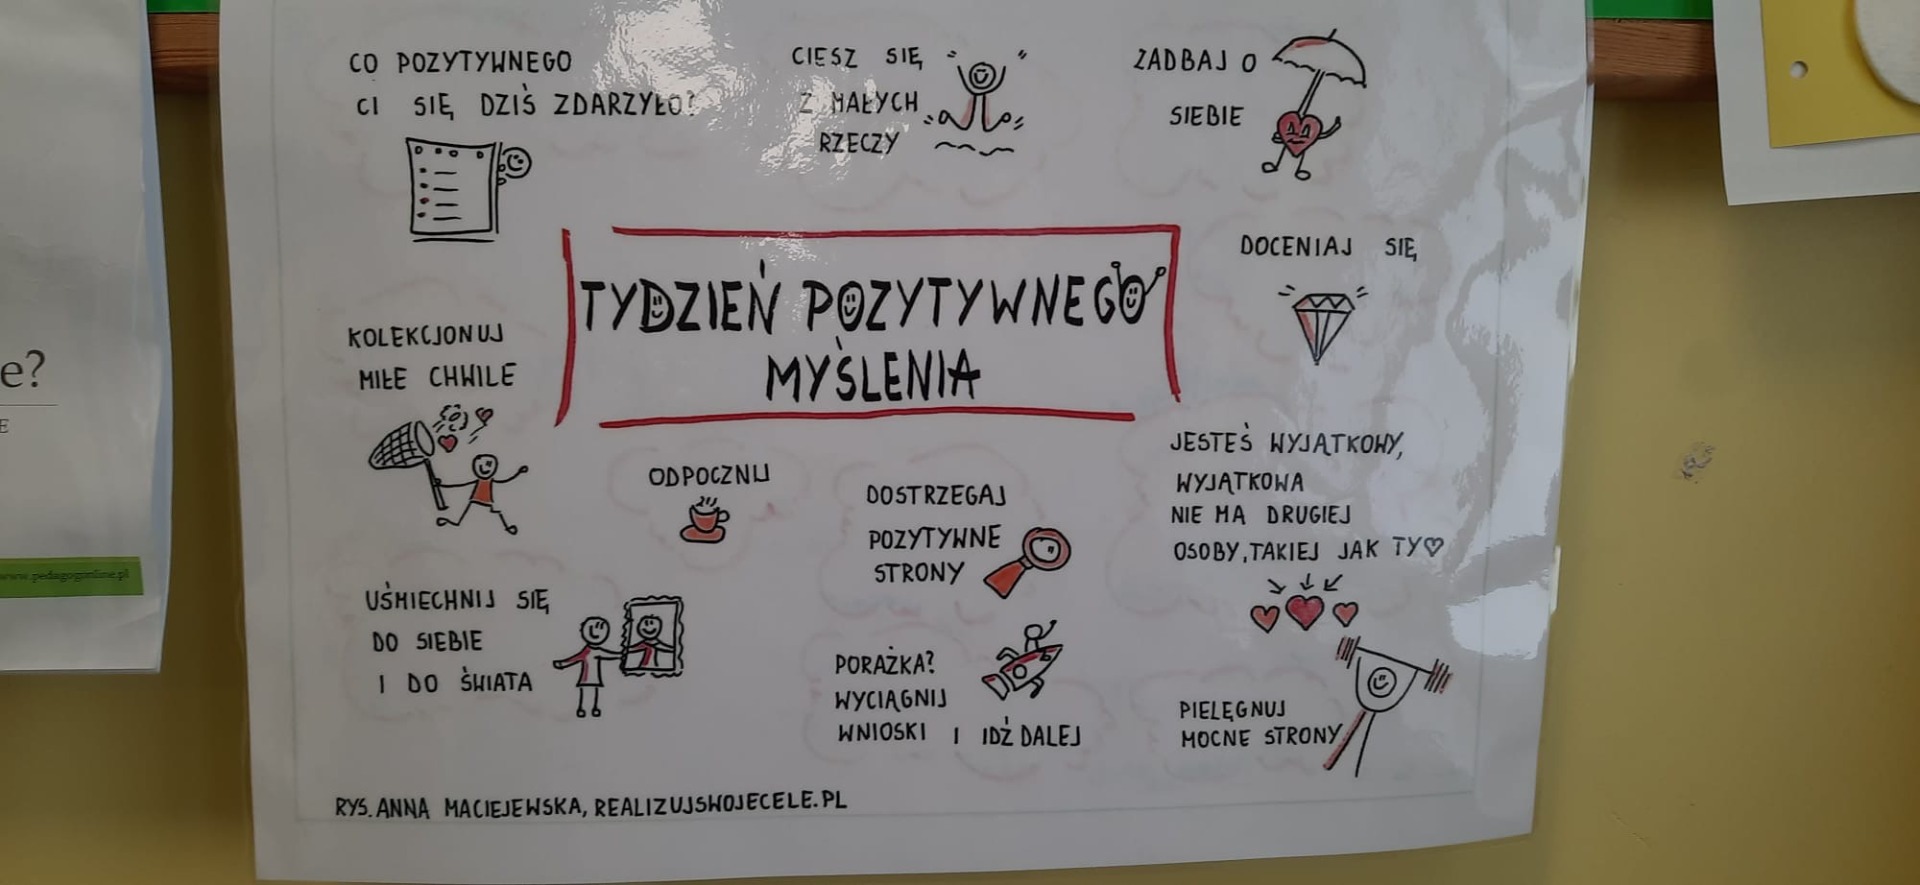 CO POZYTYWNEGO
CI SIĘ DZIŚ ZDARZYŁO?
CIESZ SIĘ
Z MAŁYCH
RZECZY
ZADBAJ O
SIEBIE
TYDZIEŃ POZYTYWNEGO
MYŚLENIA
DOCENIAJ SIĘ
KOLEKCJONUJ
MIŁE CHWILE
ODPOCZNIJ
DOSTRZEGAJ
POZYTYWNE
STRONY
JESTEŚ WYJĄTKOWY,
WYJĄTKOWA
NIE MA DRUGIEJ
OSOBY, TAKIEJ JAK TY♡
UŚMIECHNIJ SIĘ
DO SIEBIE
I DO ŚWIATA
PORAŻKA?
WYCIĄGNIJ
WNIOSKI I IDŹ DALEJ
PIELĘGNUJ
MOCNE STRONY
RYS. ANNA MACIEJEWSKA, REALIZUJSWOJECELE.PL
e?
E
www.pedagogonline.pl